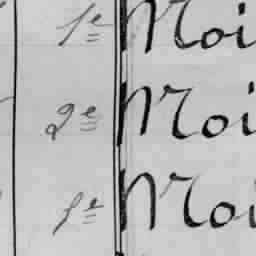 1e Moi
2e Moi
1e Moi